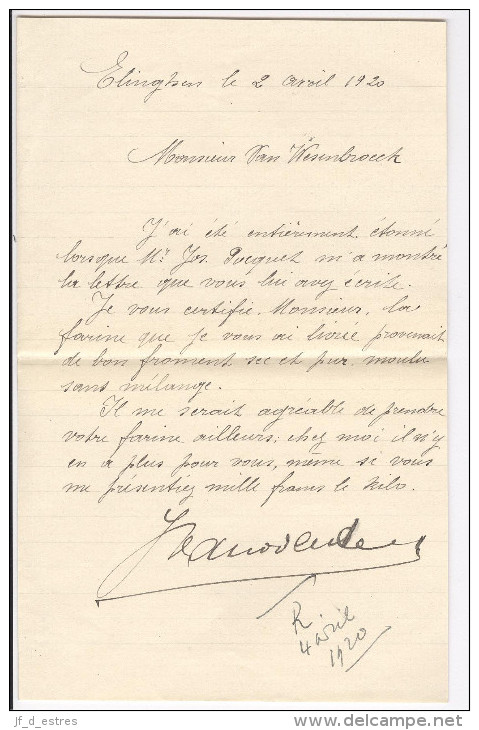 Elinghen le 2 avril 1920
Monsieur Van Wesenbroeck
J'ai été entièrement étonné
lorsque Mr Jos. Pocquet m'a montré
la lettre que vous lui avez écrite.
Je vous certifie, Monsieur, la
farine que je vous ai livrée provenait
de bon froment sec et pur, moulu
sans mélange.
Il me serait agréable de prendre
votre farine ailleurs; chez moi il n'y
en a plus pour vous, même si vous
me présentiez mille francs le kilo.
R.
4 avril
1920
jf_d_estres
www.delcampe.net